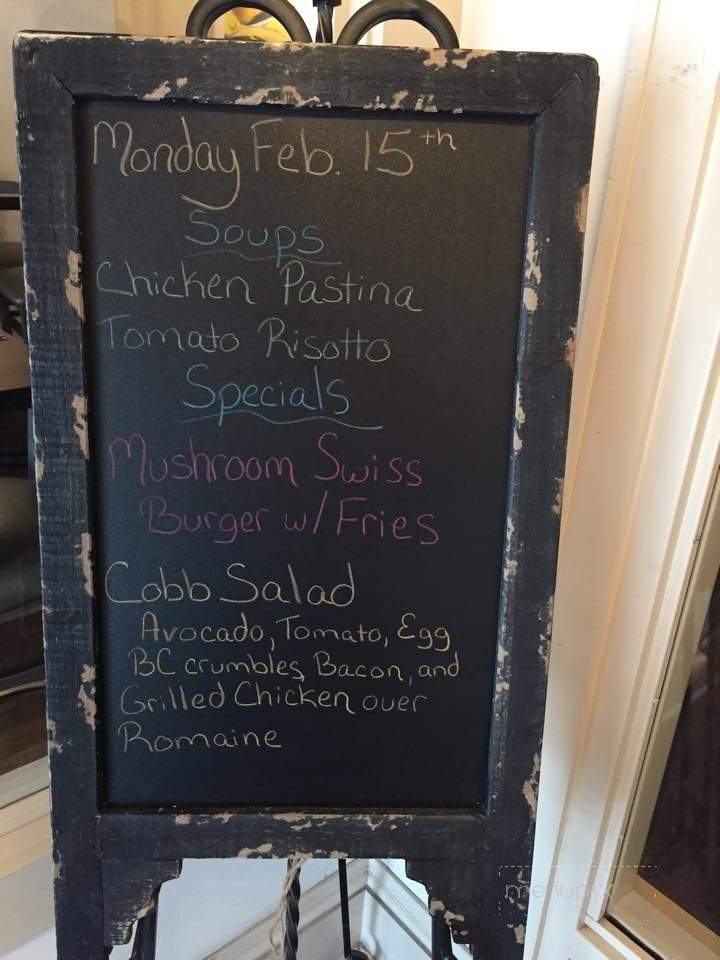 Monday Feb. 15th
Soups
Chicken Pastina
Tomato Risotto
Specials
Mushroom Swiss
Burger w/ Fries
Cobb Salad
Avocado, Tomato, Egg
BC crumbles, Bacon, and
Grilled Chicken over
Romaine
menupix